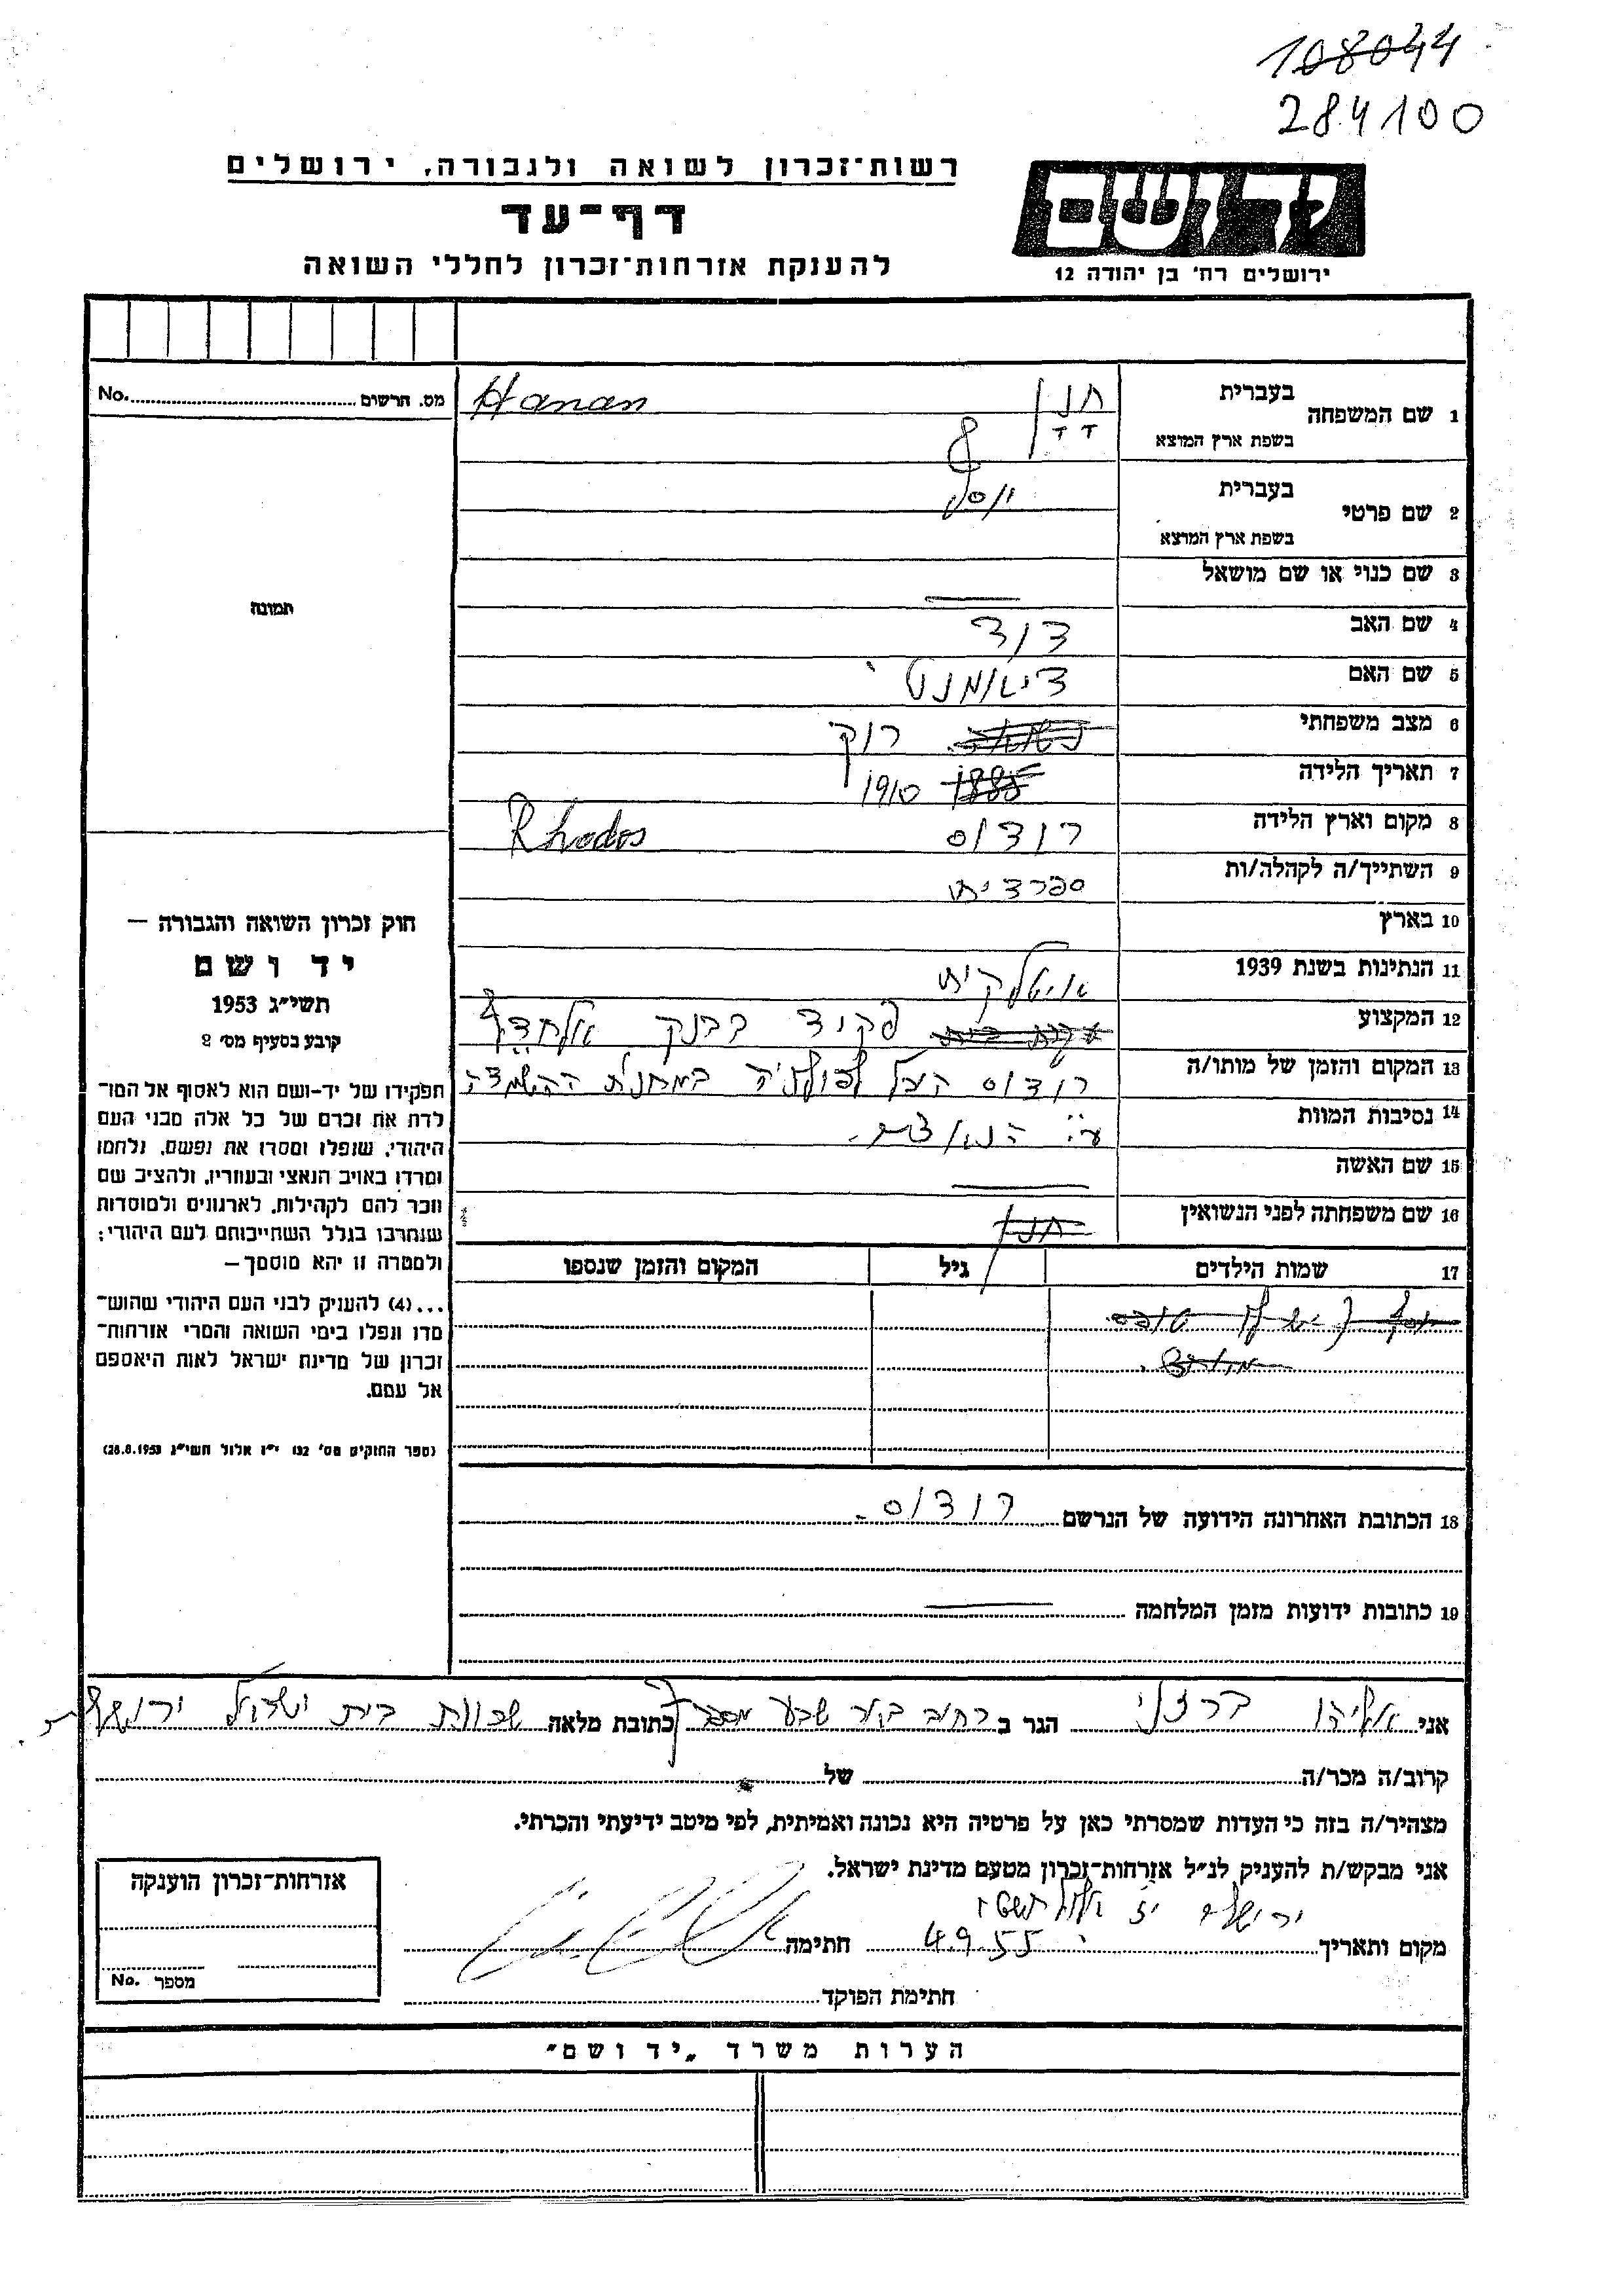 108044
284100
רשות־זכרון לשואה ולגבורה, ירושלים
דף־עד
להענקת אזרחות־זכרון לחללי השואה
ידושם
ירושלים רח' בן יהודה 12
מס. הרשום No.
תמונה
חוק זכרון השואה והגבורה —
יד ושם
תשי״ג 1953
קובע בסעיף מס' 2
תפקידו של יד-ושם הוא לאסוף אל המו־
לדת את זכרם של כל אלה מבני העם
היהודי, שנפלו ומסרו את נפשם, נלחמו
ומרדו באויב הנאצי ובעוזריו, ולהציב שם
וזכר להם לקהילות, לארגונים ולמוסדות
שנחרבו בגלל השתייכותם לעם היהודי;
ולמטרה זו יהא מוסמך —
...(4) להעניק לבני העם היהודי שהוש־
מדו ונפלו בימי השואה והמרי אזרחות־
זכרון של מדינת ישראל לאות היאספם
אל עמם.
(ספר החוקים מס' 132 י״ז אלול תשי״ג 28.8.1953)
1 שם המשפחה בעברית חנן Hanan
בשפת ארץ המוצא
2 שם פרטי בעברית יוסף
בשפת ארץ המוצא
3 שם כנוי או שם מושאל —
4 שם האב דוד
5 שם האם דיאמנטי
6 מצב משפחתי רוק
7 תאריך הלידה 1885 1910
8 מקום וארץ הלידה רודוס Rhodos
9 השתייך/ה לקהלה/ות ספרדית
10 בארץ
11 הנתינות בשנת 1939 איטלקית
12 המקצוע פקיד בבנק אלחדף
13 המקום והזמן של מותו/ה רודוס הובל לפולניה במחנות ההשמדה
14 נסיבות המוות ע״י הנאצים.
15 שם האשה —
16 שם משפחתה לפני הנשואין חנן
17 שמות הילדים גיל המקום והזמן שנספו
18 הכתובת האחרונה הידועה של הנרשם רודוס.
19 כתובות ידועות מזמן המלחמה —
אני אליהו ברזלי הגר ב רחוב באר שבע מספר כתובת מלאה שכונת בית ישראל ירושלים
קרוב/ה מכר/ה של
מצהיר/ה בזה כי העדות שמסרתי כאן על פרטיה היא נכונה ואמיתית, לפי מיטב ידיעתי והכרתי.
אני מבקש/ת להעניק לנ״ל אזרחות-זכרון מטעם מדינת ישראל.
ירושלים יז אלול תשטו
מקום ותאריך 4.9.55 חתימה
חתימת הפוקד
אזרחות־זכרון הוענקה
מספר No.
הערות משרד „יד ושם״